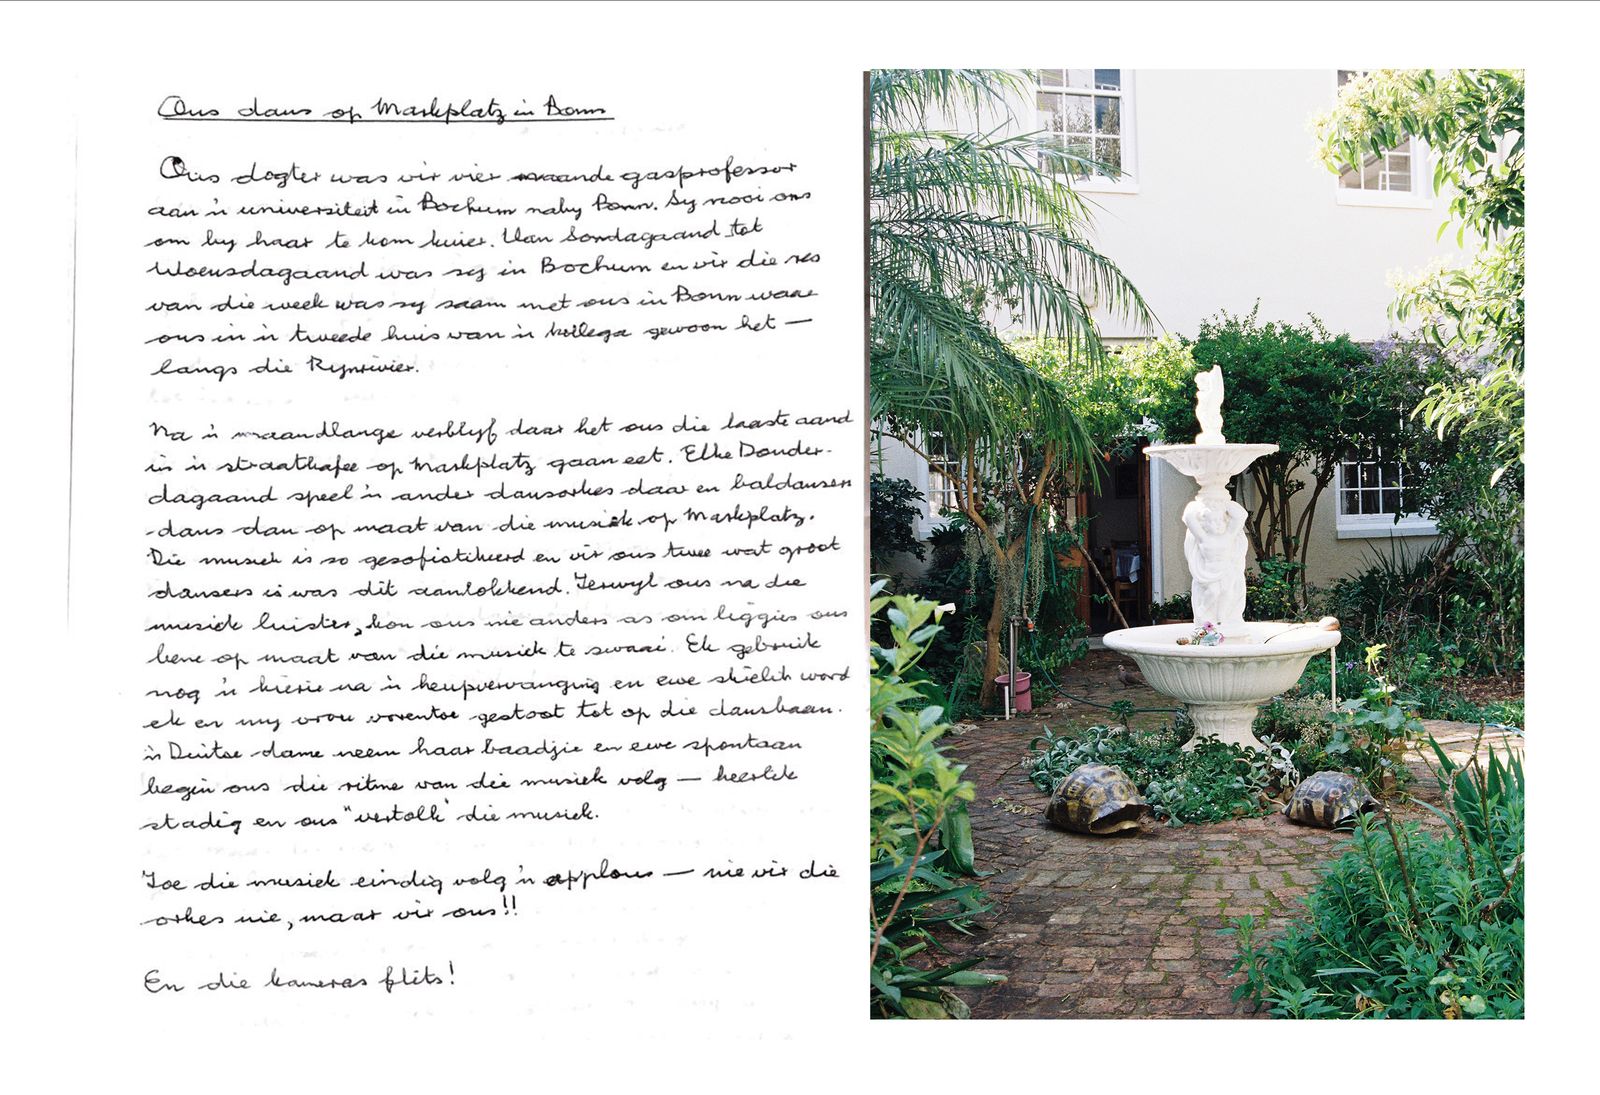 Ons dans op Markplatz in Bonn
Ons dogter was vir vier maande gasprofessor
aan 'n universiteit in Bochum naby Bonn. Sy nooi ons
om by haar te kom kuier. Van Sondagaand tot
Woensdagaand was sy in Bochum en vir die res
van die week was sy saam met ons in Bonn waar
ons in 'n tweede huis van 'n kollega gewoon het —
langs die Rynrivier.
Na 'n maandlange verblyf daar het ons die laaste aand
in 'n straatkafee op Markplatz gaan eet. Elke Donder-
dagaand speel 'n ander dansorkes daar en baldansers
dans dan op maat van die musiek op Markplatz.
Die musiek is so gesofistikeerd en vir ons twee wat groot
dansers is was dit aanlokkend. Terwyl ons na die
musiek luister, kon ons nie anders as om liggies ons
bene op maat van die musiek te swaai. Ek gebruik
nog 'n kierie na 'n heupvervanging en ewe skielik word
ek en my vrou vorentoe gestoot tot op die dansbaan.
'n Duitse dame neem haar baadjie en ewe spontaan
begin ons die ritme van die musiek volg — heerlik
stadig en ons "vertolk" die musiek.
Toe die musiek eindig volg 'n applous — nie vir die
orkes nie, maar vir ons!!
En die kameras flits!